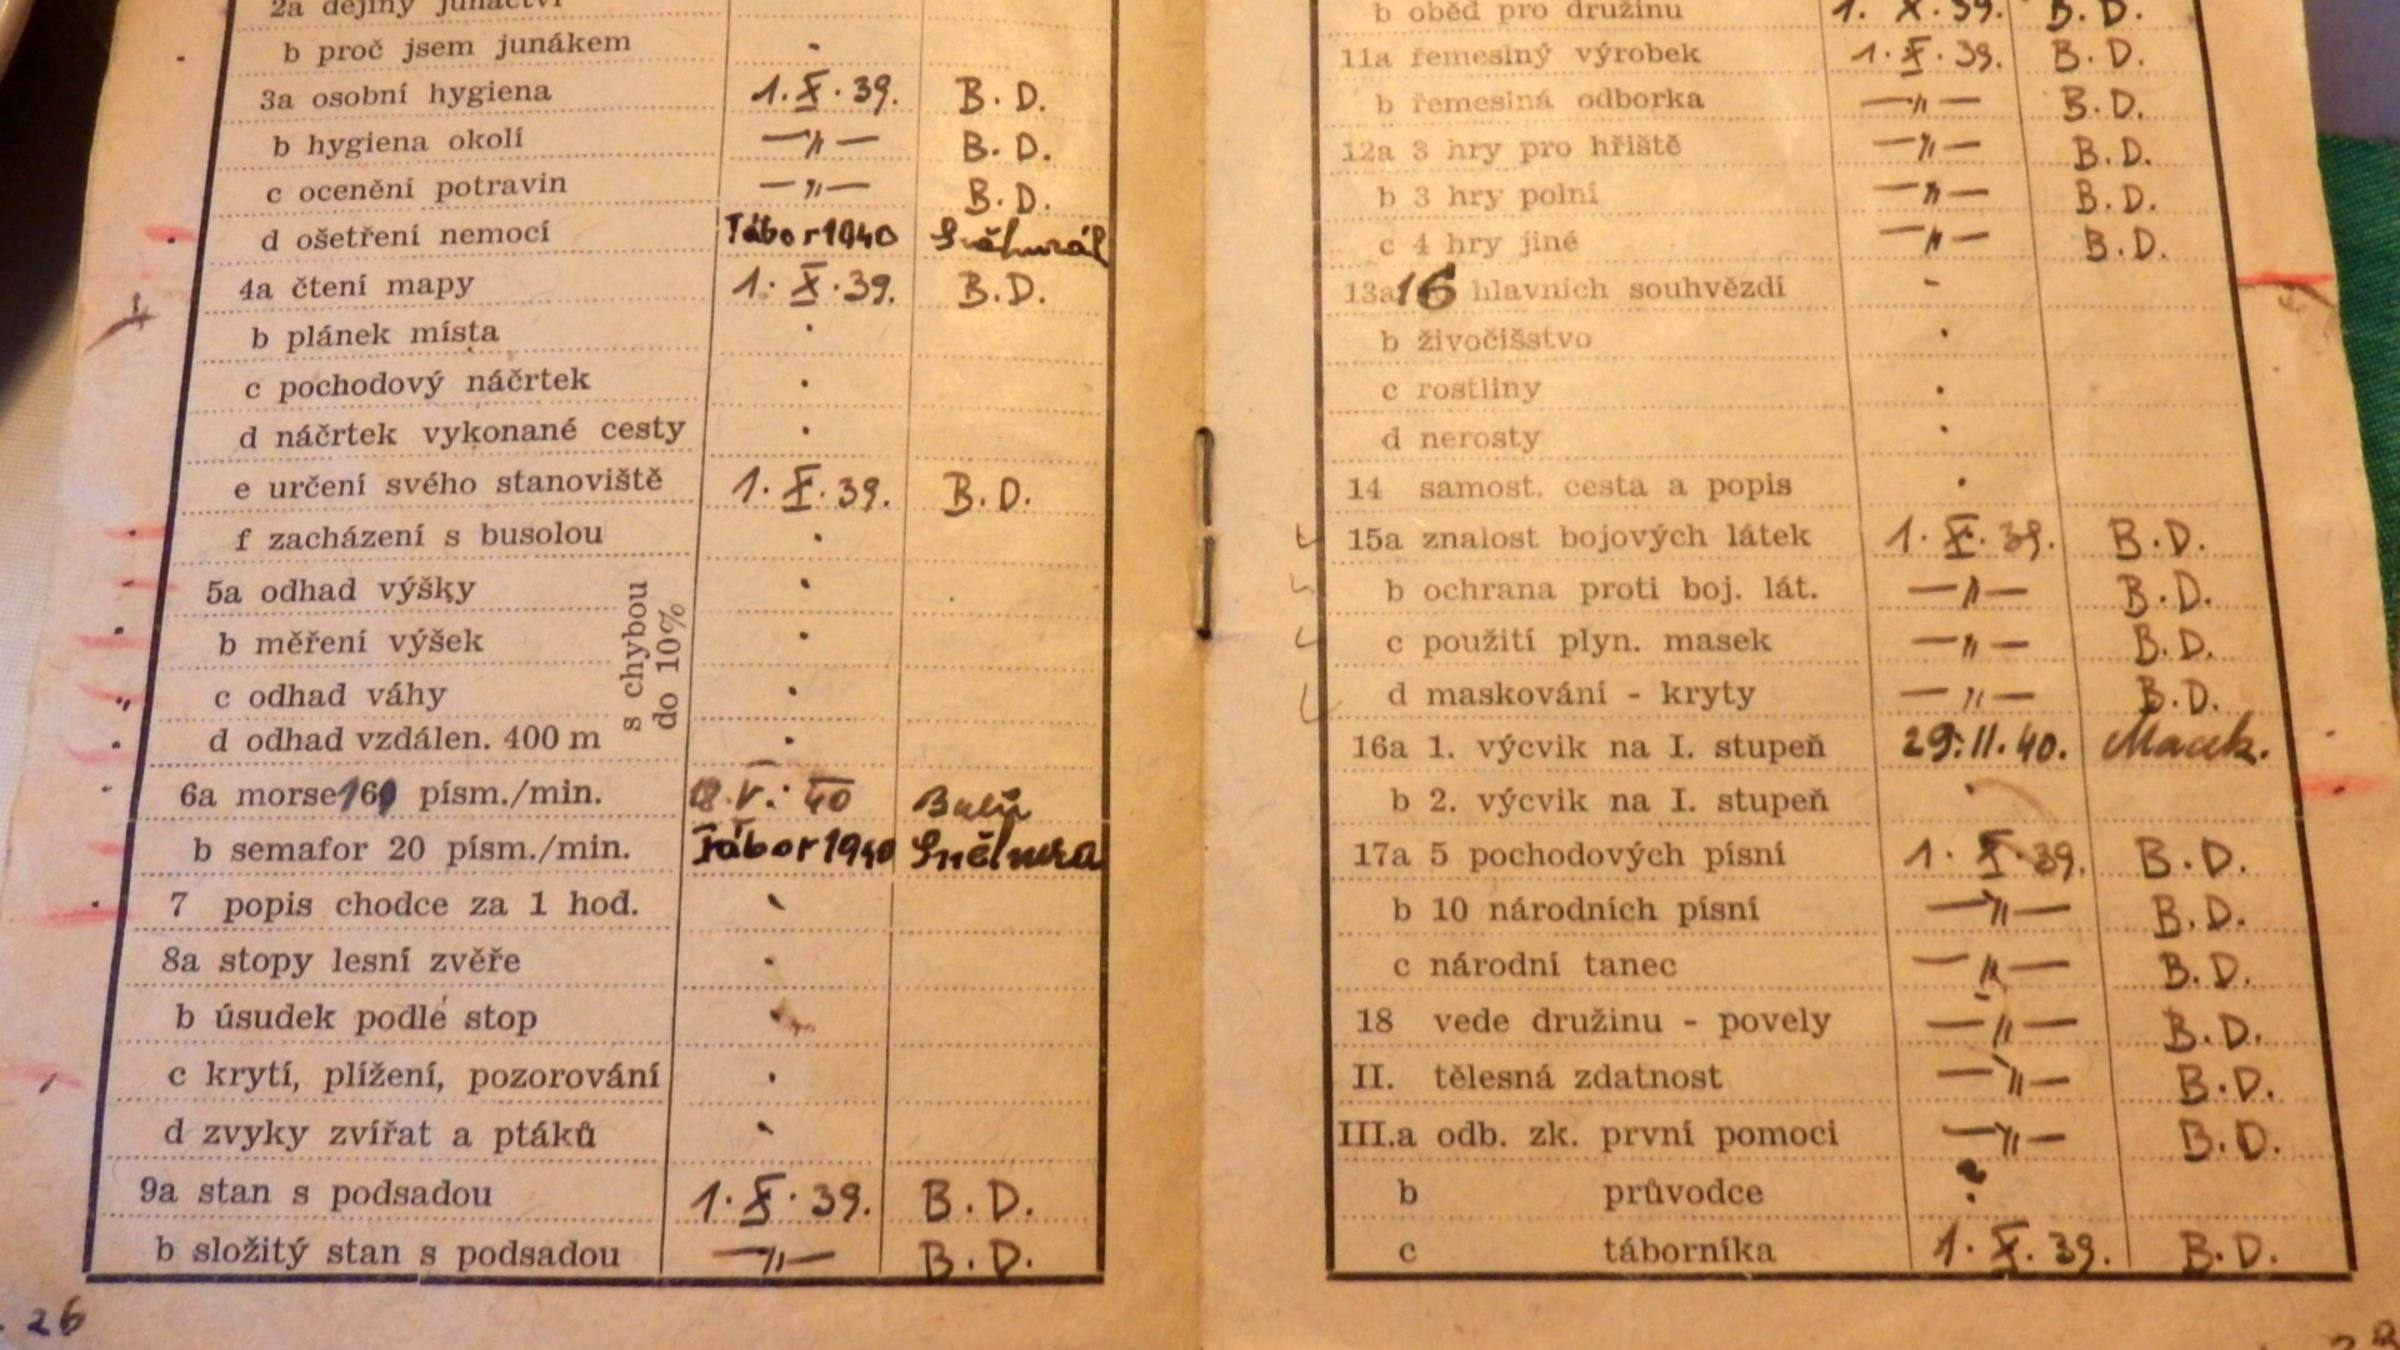 2a dějiny junáctví
b proč jsem junákem .
3a osobní hygiena 1. X. 39. B. D.
b hygiena okolí —〃— B. D.
c ocenění potravin —〃— B. D.
d ošetření nemocí Tábor 1940
4a čtení mapy 1. X. 39. B. D.
b plánek místa .
c pochodový náčrtek .
d náčrtek vykonané cesty .
e určení svého stanoviště 1. X. 39. B. D.
f zacházení s busolou .
5a odhad výšky .
b měření výšek .
c odhad váhy .
d odhad vzdálen. 400 m .
s chybou
do 10%
6a morse písm./min. V. 40
b semafor 20 písm./min. Tábor 1940
7 popis chodce za 1 hod.
8a stopy lesní zvěře .
b úsudek podle stop
c krytí, plížení, pozorování .
d zvyky zvířat a ptáků
9a stan s podsadou 1. X. 39. B. D.
b složitý stan s podsadou —〃— B. D.
26
b oběd pro družinu 1. X. 39. B. D.
11a řemeslný výrobek 1. X. 39. B. D.
b řemeslná odborka —〃— B. D.
12a 3 hry pro hřiště —〃— B. D.
b 3 hry polní —〃— B. D.
c 4 hry jiné —〃— B. D.
13a 16 hlavních souhvězdí -
b živočišstvo .
c rostliny .
d nerosty .
14 samost. cesta a popis .
15a znalost bojových látek 1. X. 39. B. D.
b ochrana proti boj. lát. —〃— B. D.
c použití plyn. masek —〃— B. D.
d maskování - kryty —〃— B. D.
16a 1. výcvik na I. stupeň 29. II. 40. Macek.
b 2. výcvik na I. stupeň
17a 5 pochodových písní 1. X. 39. B. D.
b 10 národních písní —〃— B. D.
c národní tanec —〃— B. D.
18 vede družinu - povely —〃— B. D.
II. tělesná zdatnost —〃— B. D.
III.a odb. zk. první pomoci —〃— B. D.
b průvodce
c táborníka 1. X. 39. B. D.